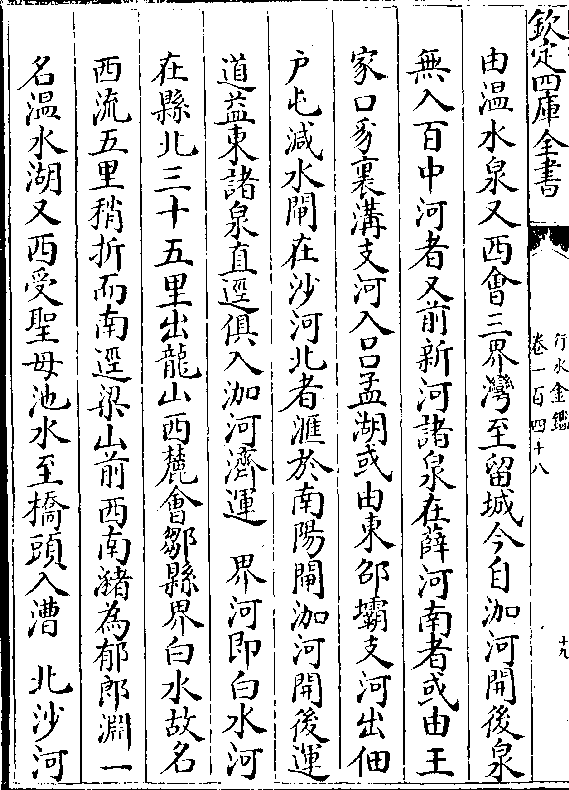 欽定四庫全書
行水金鑑
卷一百四十八
十九
由温水泉又西會三界灣至留城今自泇河開後泉
無入百中河者又前新河諸泉在薛河南者或由王
家口豸裏溝支河入吕孟湖或由東邵壩支河出佃
户屯減水閘在沙河北者滙於南陽閘泇河開後運
道益東諸泉直逕俱入泇河濟運 界河即白水河
在縣北三十五里出龍山西麓會鄒縣界白水故名
西流五里稍折而南逕梁山前西南瀦為郁郎淵一
名温水湖又西受聖母池水至橋頭入漕 北沙河